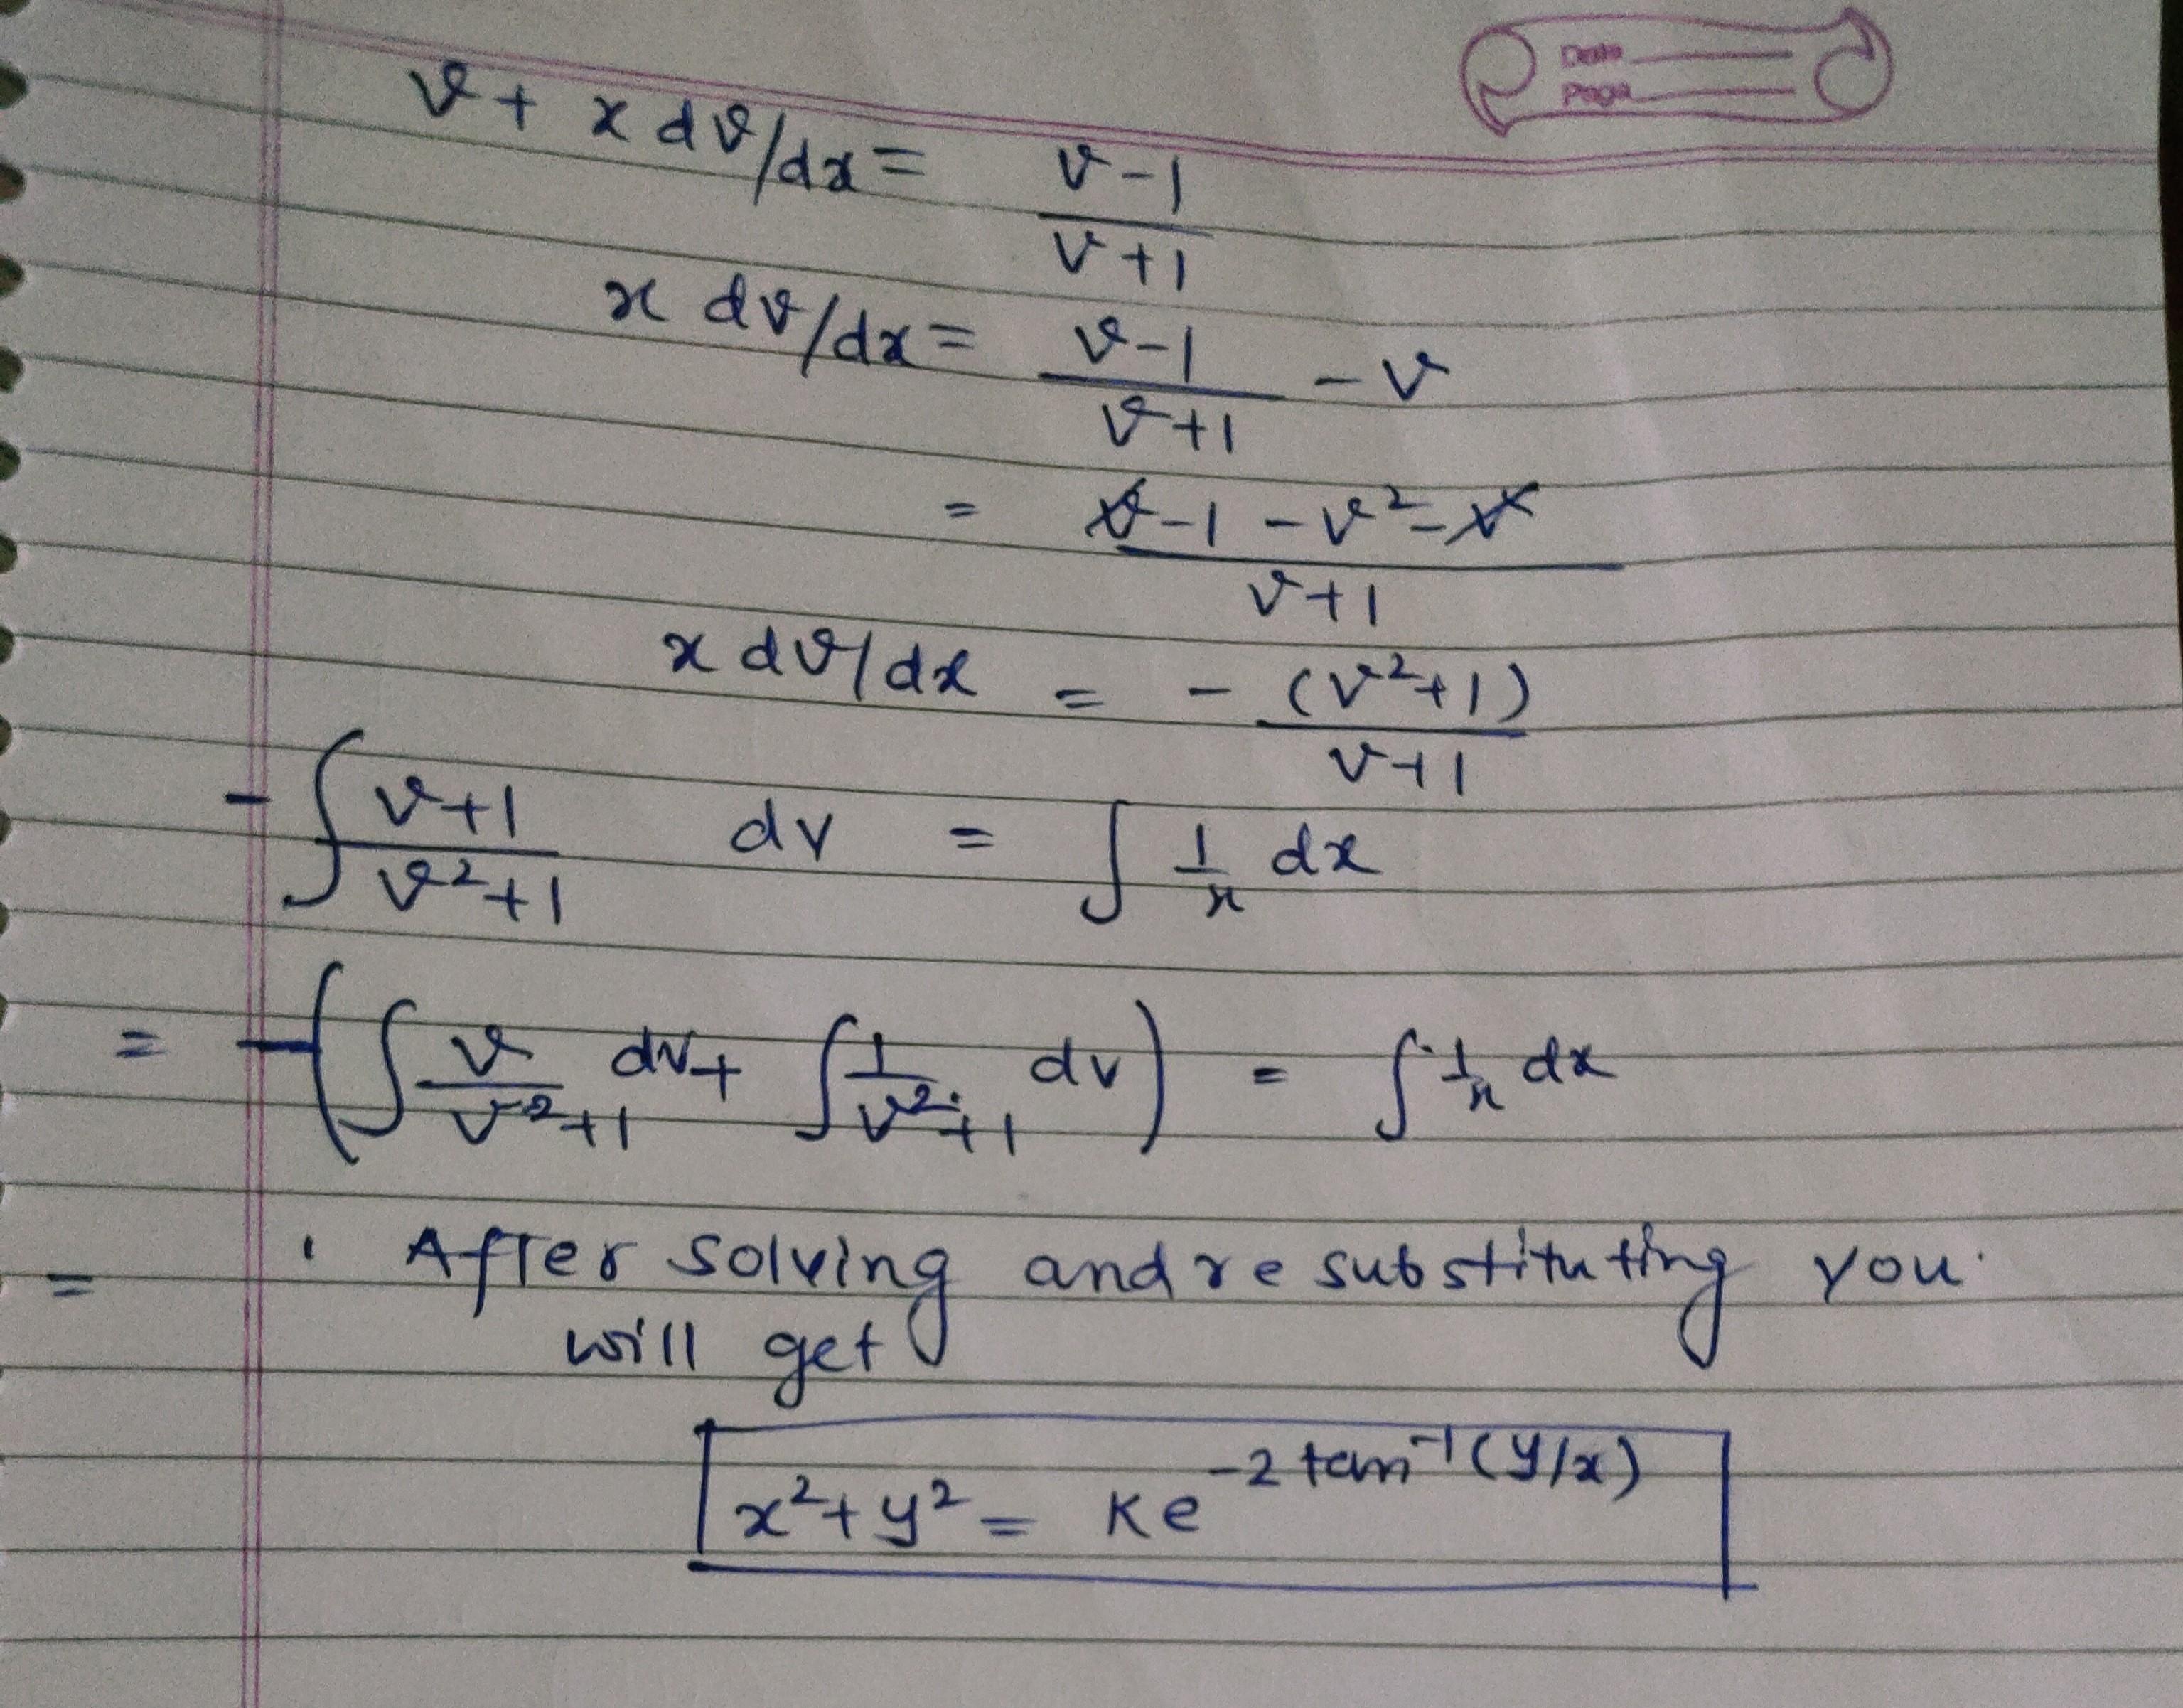 Date
Page
v + x dv/dx = v-1 / v+1
x dv/dx = v-1 / v+1 - v
= v-1-v²-v / v+1
x dv/dx = - (v²+1) / v+1
- ∫ v+1 / v²+1 dv = ∫ 1/x dx
= - ( ∫ v / v²+1 dv + ∫ 1 / v²+1 dv ) = ∫ 1/x dx
= After solving and resubstituting you
will get
x²+y² = Ke^-2 tan^-1 (y/x)